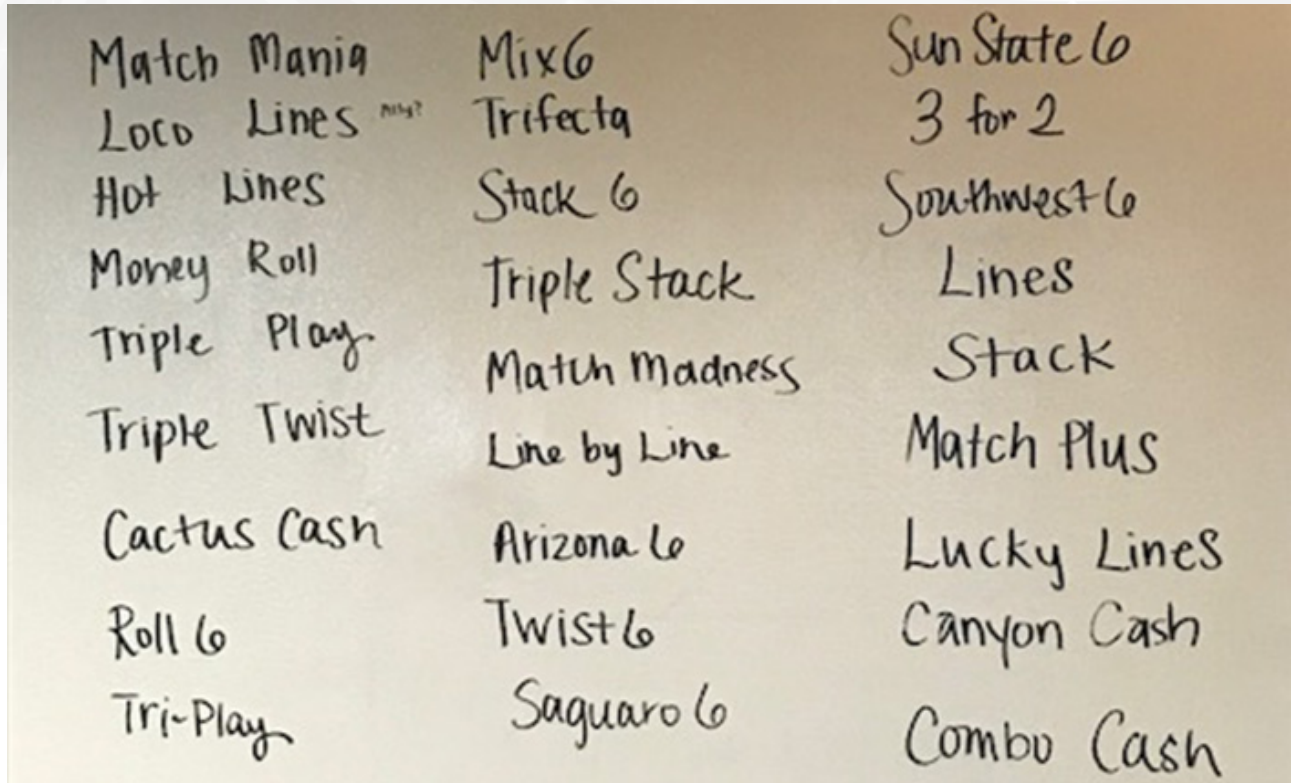 Match Mania
Loco Lines
Hot Lines
Money Roll
Triple Play
Triple Twist
Cactus Cash
Roll 6
Tri-Play
Mix6
Trifecta
Stack 6
Triple Stack
Match Madness
Line by Line
Arizona 6
Twist 6
Saguaro 6
Sun State 6
3 for 2
Southwest 6
Lines
Stack
Match Plus
Lucky Lines
Canyon Cash
Combo Cash